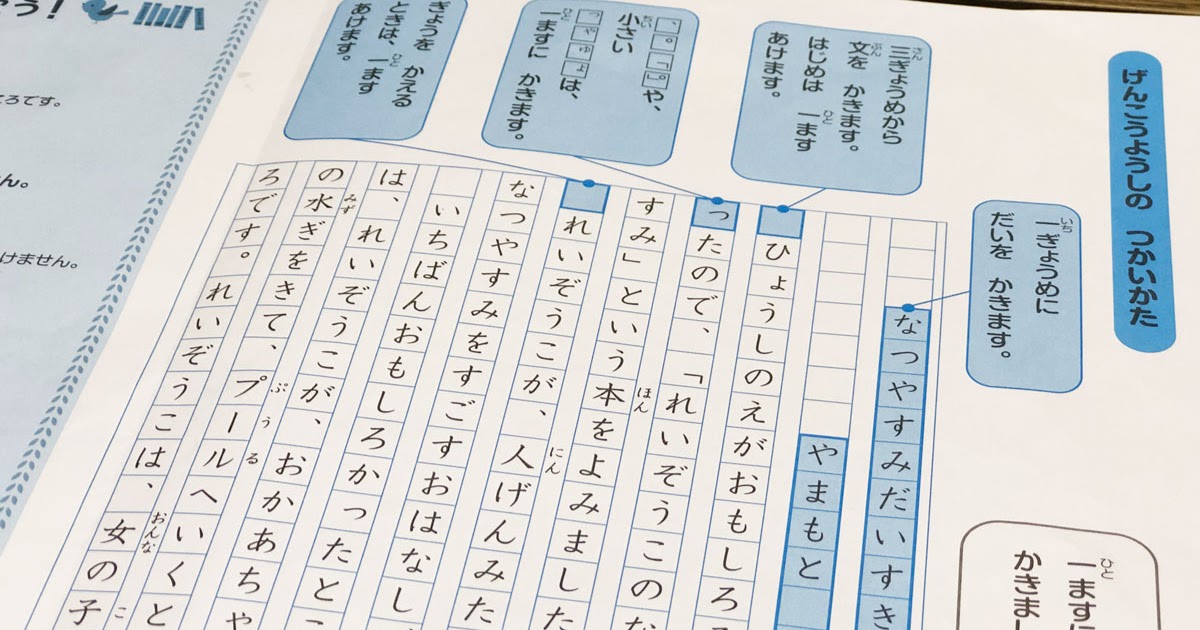 げんこうようしの つかいかた
一ぎょうめに
だいを かきます。
三ぎょうめから
文を かきます。
はじめは 一ます
あけます。
、。「」や、
小さい
っゃゅょは、
一ますに かきます。
ぎょうを かえる
ときは、一ます
あけます。
なつやすみだいすき
やまもと
ひょうしのえがおもしろ
ったので、「れいぞうこのな
すみ」という本をよみました
れいぞうこが、人げんみた
なつやすみをすごすおはなし
いちばんおもしろかったと
は、れいぞうこが、おかあちゃ
の水ぎをきて、プールへいくと
ろです。れいぞうこは、女の子
一ますに
かきまし
う!
ろです。
ん。
けません。